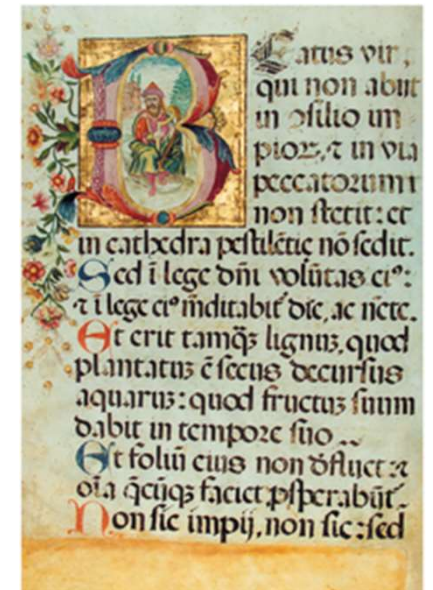 Beatus vir,
qui non abiit
in ꝯsilio im
pioꝝ, ⁊ in via
peccatorum
non stetit: et
in cathedra pestilẽtie nõ sedit.
Sed ĩ lege dñi volũtas eiꝰ:
⁊ ĩ lege eiꝰ m̃ditabit᷑ die, ac nc̃te.
Et erit tamqꝫ lignuꝫ, quod
plantatuꝫ ẽ secus decursus
aquaruꝫ: quod fructuꝫ suum
dabit in tempore suo
Et foliũ eius non defluet: ⁊
oĩa q̃cũqꝫ faciet, ꝓsperabũt᷑.
Non sic impij, non sic: sed